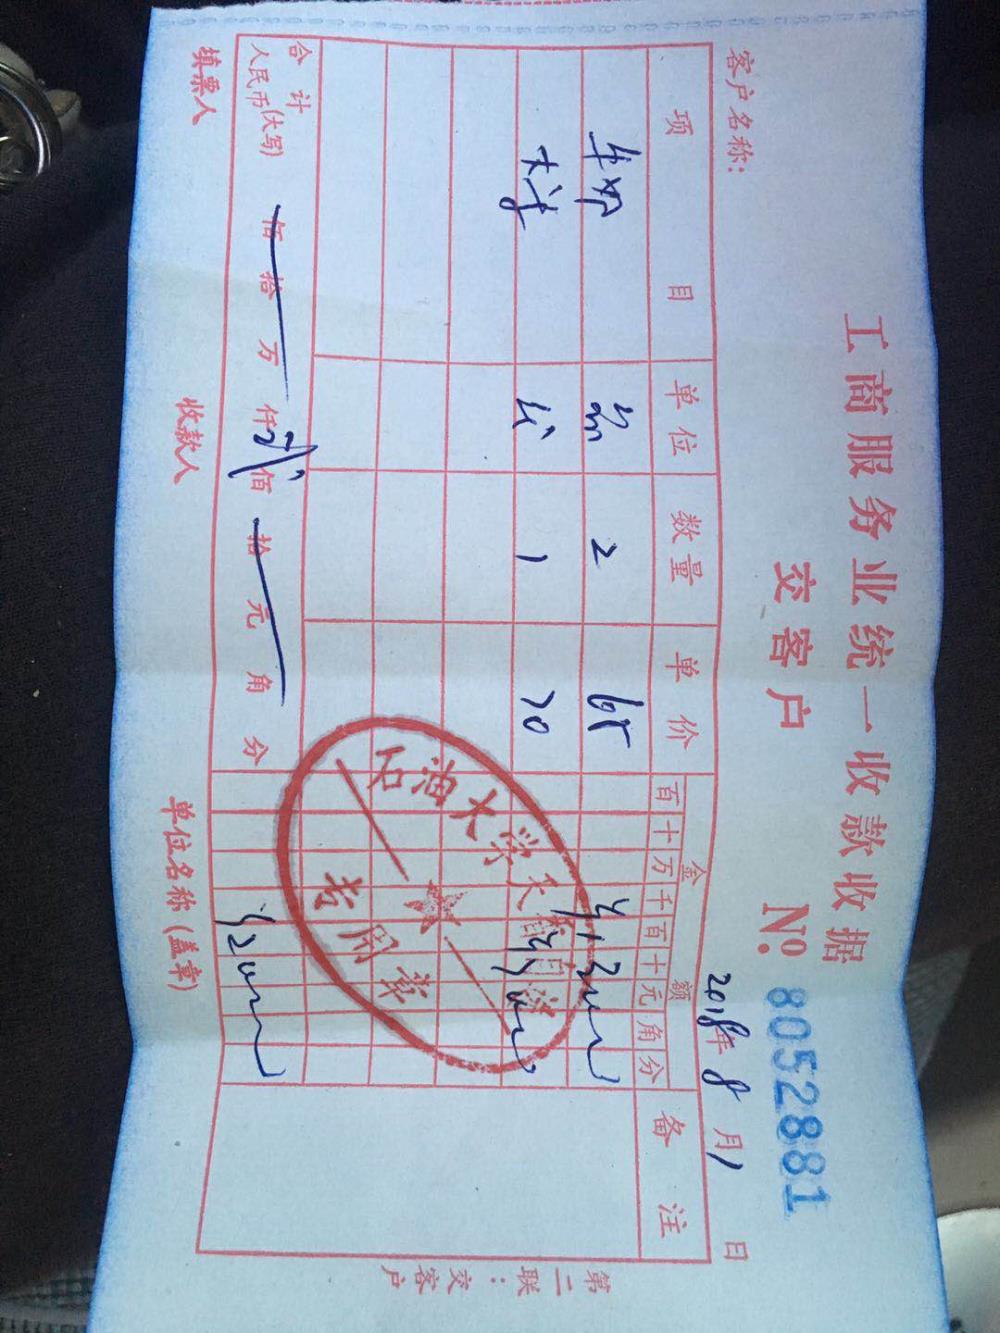 工商服务业统一收款收据
交客户 № 8052881
客户名称: 2018年 8 月 1 日
项目 单位 数量 单价 金额 备注
百 十 万 千 百 十 元 角 分
牛奶 2 65
1 70
合计
人民币(大写) 佰 拾 万 仟 佰 拾 元 角 分 ¥200
填票人 收款人 单位名称(盖章)
第二联:交客户
石油大学天
专用章